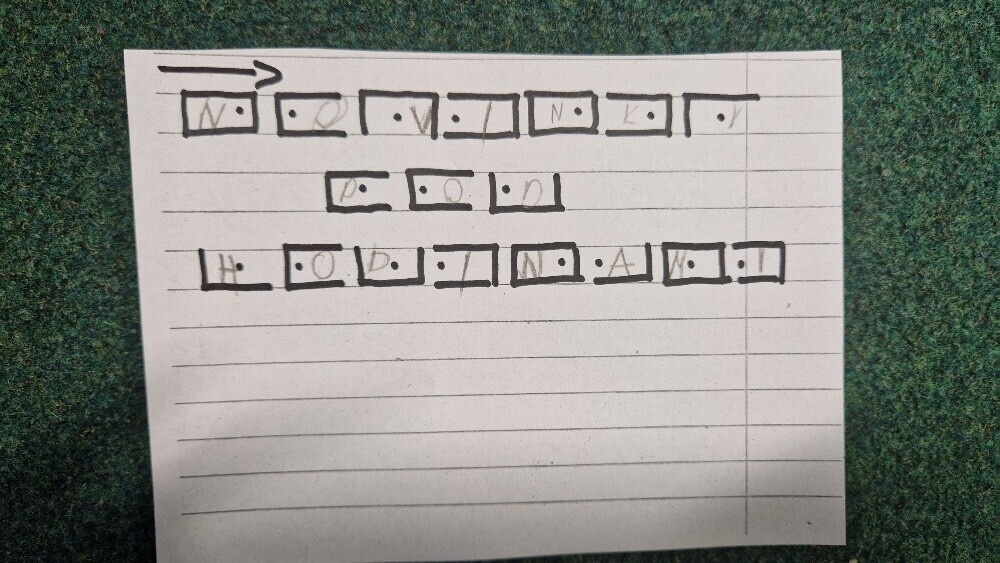 NOVINKY
POD
HODINAMI